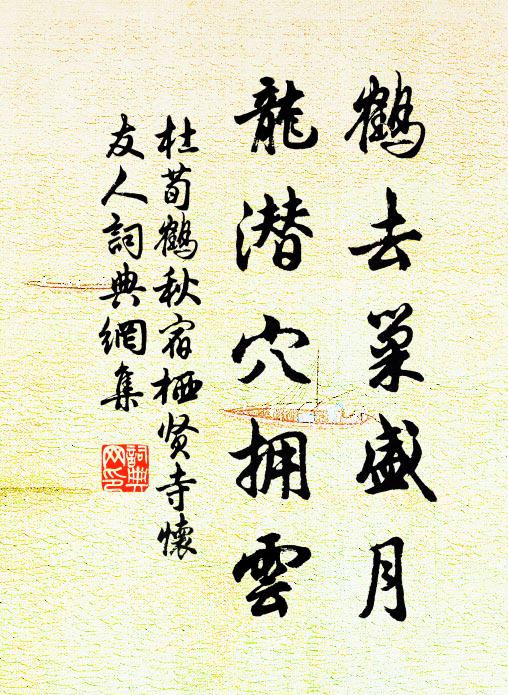 鶴去巢盛月
龍潛穴拥雲
杜荀鶴秋宿栖贤寺懷
友人詞典網集
詞典
网印